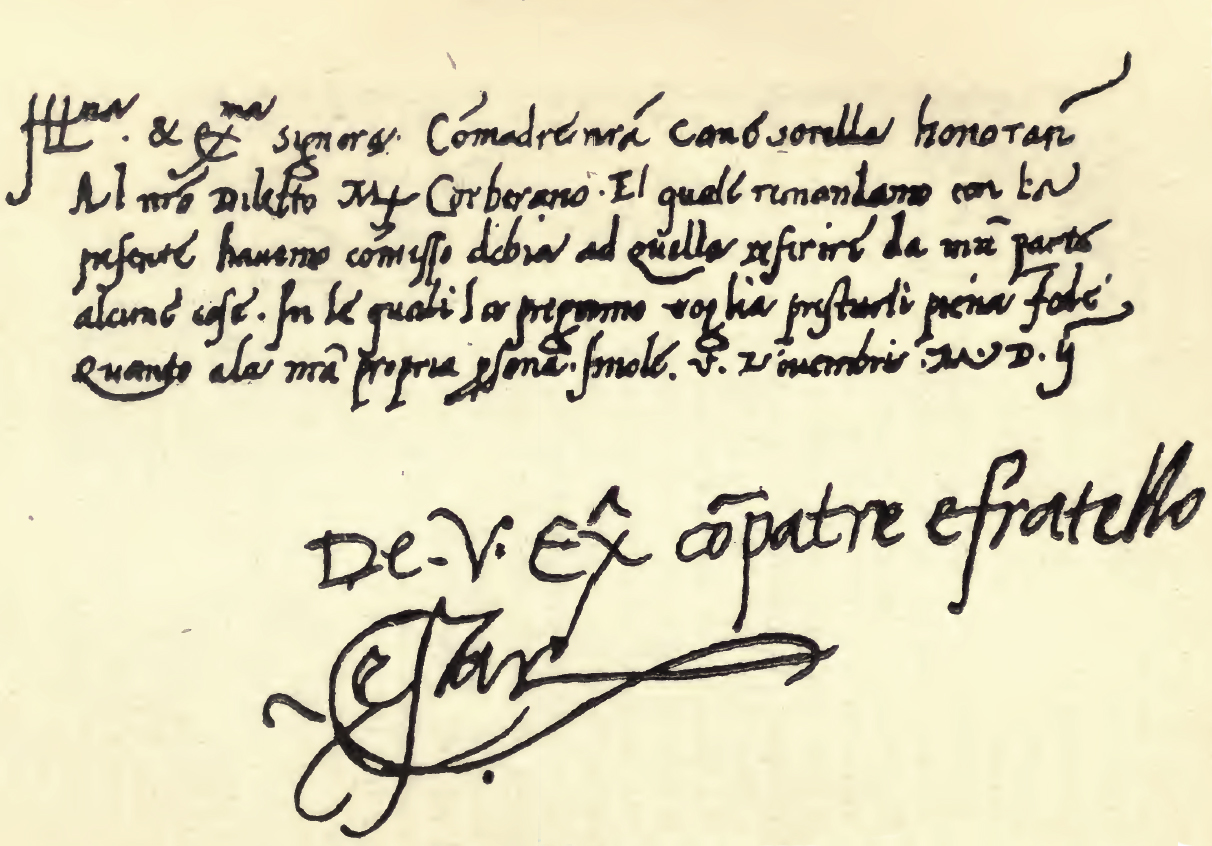 Illma. & Exma Signora. Cōmadre nrā come sorella honoranͫ
Al nrō Diletto Mͬ Corberano. El quale rimandamo con la
pesente hauemo cōmisso debia ad quella referire da nrā parte
alcune cose. In le quali la pregamo voglia prestarli piena fede
Quanto ala nrā propria psona. Imole. v. Nouembris. M. D. ij
De. V. Ex cōpatre e fratello
Cesar